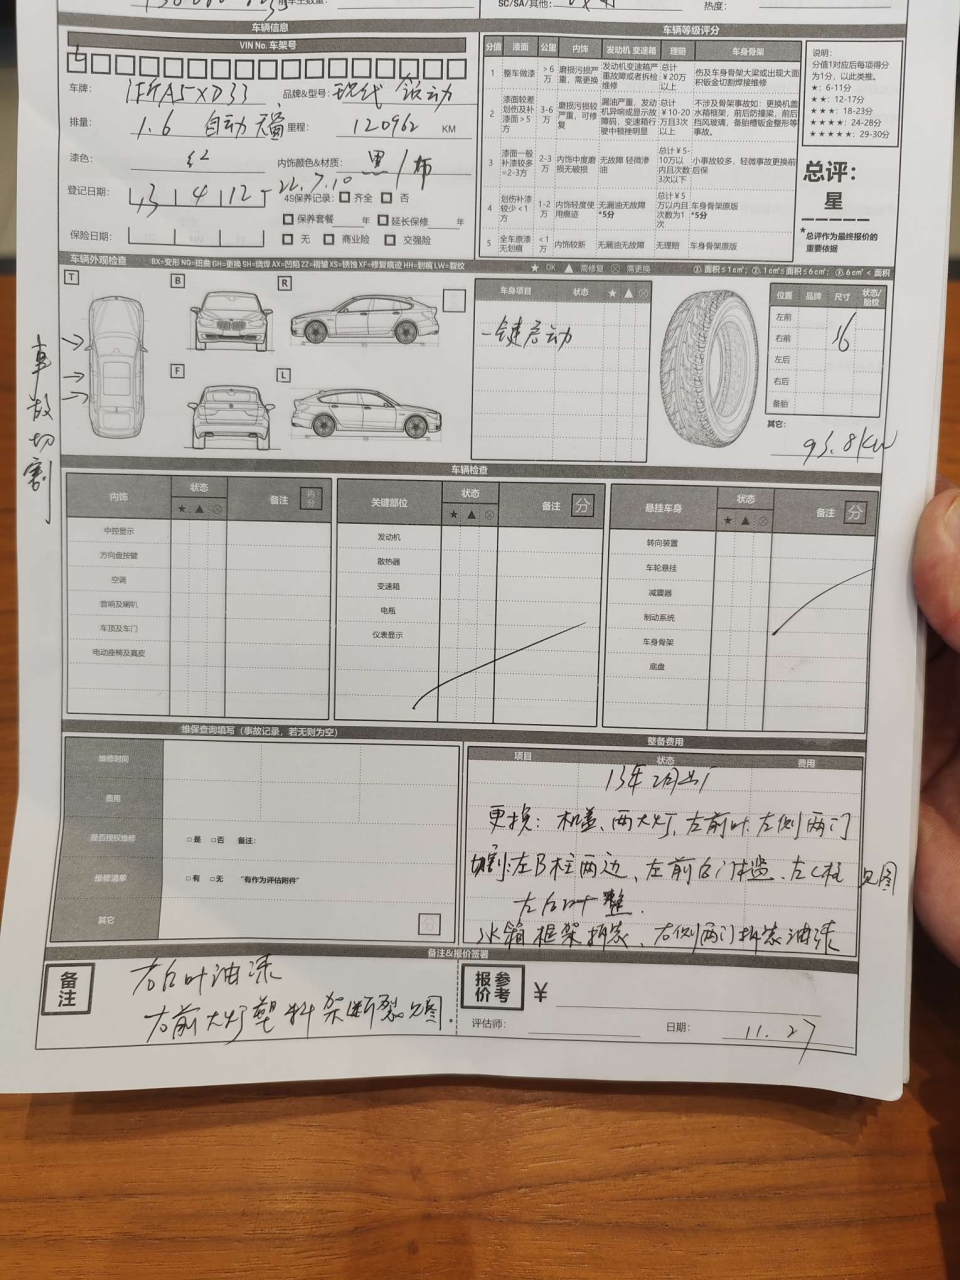 SC/SA/其他：
热度：
车辆信息
VIN No. 车架号
L
车牌：
浙A5XD33
品牌&型号：
现代 领动
排量：
1.6 自动 天窗
里程：
120962 KM
漆色：
红2
内饰颜色&材质：
黑/布
登记日期：
13 4 12
22.7.10
4S保养记录：□ 齐全 □ 否
□ 保养套餐 年 □ 延长保修 年
保险日期：
□ 无 □ 商业险 □ 交强险
车辆等级评分
分值 漆面 公里 内饰 发动机 变速箱 理赔 车身骨架
1 整车做漆 >6万 磨损污损严重，需更换 发动机变速箱严重故障或者拆检维修 总计¥20万以上 伤及车身骨架大梁或出现大面积钣金切割焊接维修
2 漆面较差划伤及补漆面>5方 3-6万 磨损污损较严重，可修复 漏油严重，发动机异响或显示故障码，变速箱行驶中顿挫明显 总计¥10-20万且3次以上 不涉及骨架事故如：更换机盖水箱框架，前后防撞梁，前后挡风玻璃，备胎槽钣金整形等事故。
3 漆面一般补漆较多=2-3方 2-3万 内饰中度磨损无破损 无故障 轻微渗油 总计¥5-10万以内且次数3次以下 小事故较多，轻微事故更换前后保
4 划伤补漆较少<1方 1-2万 内饰轻度使用痕迹 无漏油无故障*5分 总计¥5万以内且次数为1次 车身骨架原版*5分
5 全车原漆无划痕 <1万 内饰较新 无漏油无故障 无理赔 车身骨架原版
说明：
分值1对应后每项得分为1分，以此类推。
★：6-11分
★★：12-17分
★★★：18-23分
★★★★：24-28分
★★★★★：29-30分
总评：
星
*总评作为最终报价的重要依据
车辆外观检查
BX=变形 NQ=扭曲 GH=更换 SH=烧焊 AX=凹陷 ZZ=褶皱 XS=锈蚀 XF=修复痕迹 HH=划痕 LW=裂纹
★ OK ▲ 需修复 ⊗ 需更换
①. 面积≤1c㎡；②.1c㎡≤面积≤6c㎡；③.6c㎡<面积
T B R F L
事故切割
车身项目 状态 ★ ▲ ⊗
一键启动
位置 品牌 尺寸 状态/胎纹
左前
右前
16
左后
右后
备胎
其它：
93.8kw
车辆检查
内饰 状态 ★ ▲ ⊗ 备注 内分
中控显示
方向盘按键
空调
音响及喇叭
车顶及车门
电动座椅及真皮
关键部位 状态 ★ ▲ ⊗ 备注 分
发动机
散热器
变速箱
电瓶
仪表显示
悬挂车身 状态 ★ ▲ ⊗ 备注 分
转向装置
车轮悬挂
减震器
制动系统
车身骨架
底盘
维保查询填写（事故记录，若无则为空）
维修时间
费用
是否授权维修 □是 □否 备注：
维修清单 □有 □无 "有作为评估附件"
其它 分
整备费用
项目 状态 费用
13年2月出厂
更换：机盖、两大灯、左前叶、左侧两门
切割：左B柱两边、左前 门 、左C柱 见图
左后叶整.
水箱框架拆装、右侧两门拆装油漆
备注&报价签署
备注
右后叶油漆
右前大灯塑料架断裂见图.
报价参考 ¥
评估师：
日期：
11.27